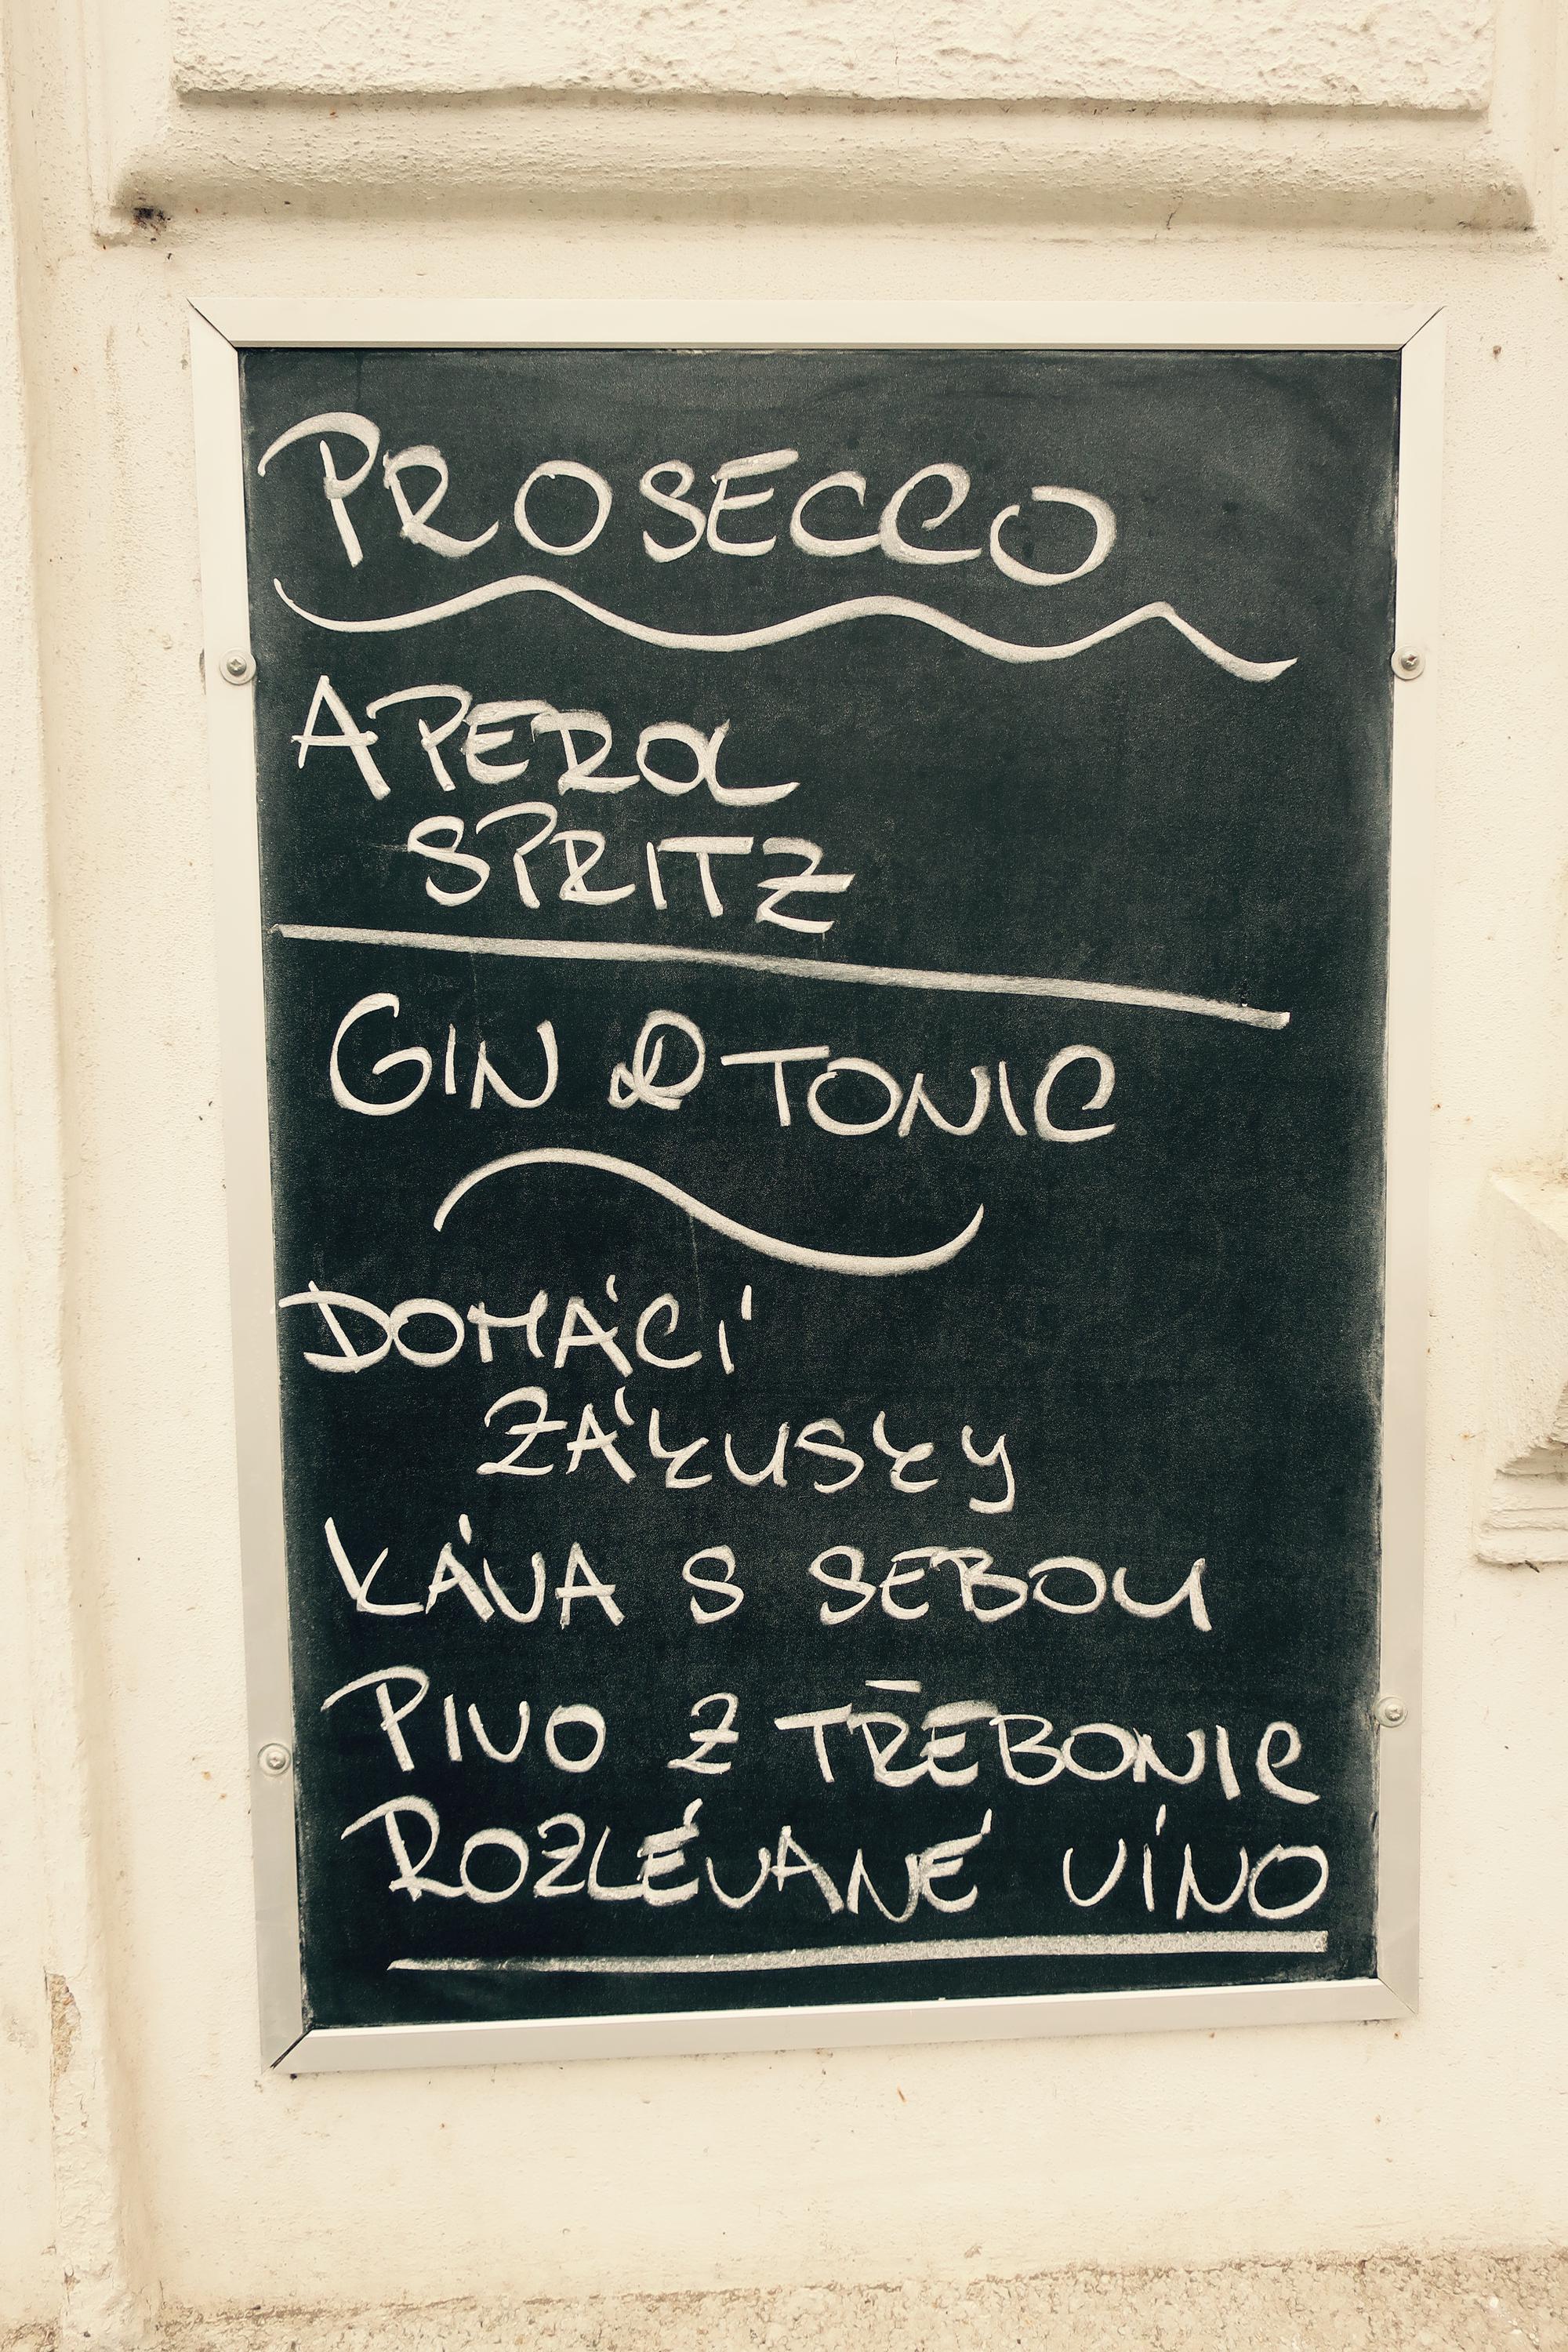 PROSECCO
APEROL
SPRITZ
GIN & TONIC
DOMÁCÍ
ZÁKUSKY
KÁVA S SEBOU
PIVO Z TŘEBONIC
ROZLÉVANÉ VÍNO